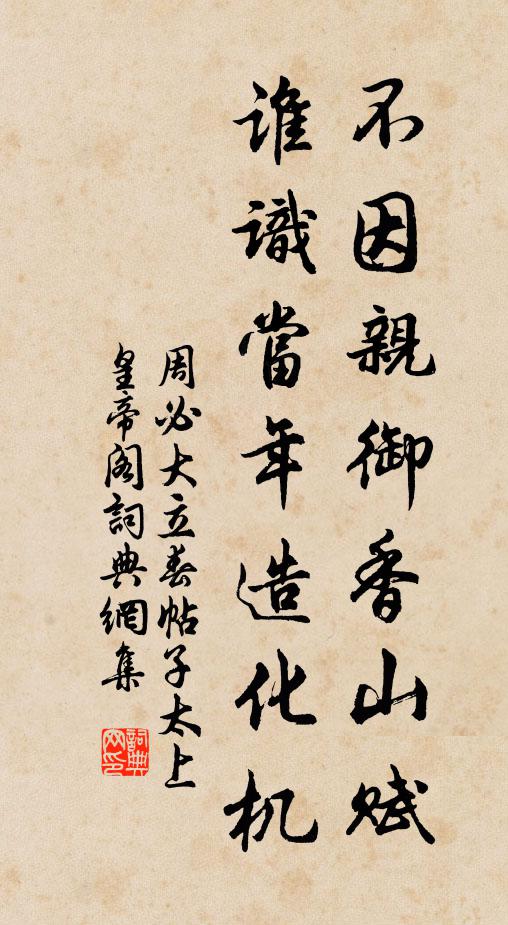 不因親御香山賦
誰識當年造化机
周必大立春帖子太上
皇帝閣詞典網集
詞典网印